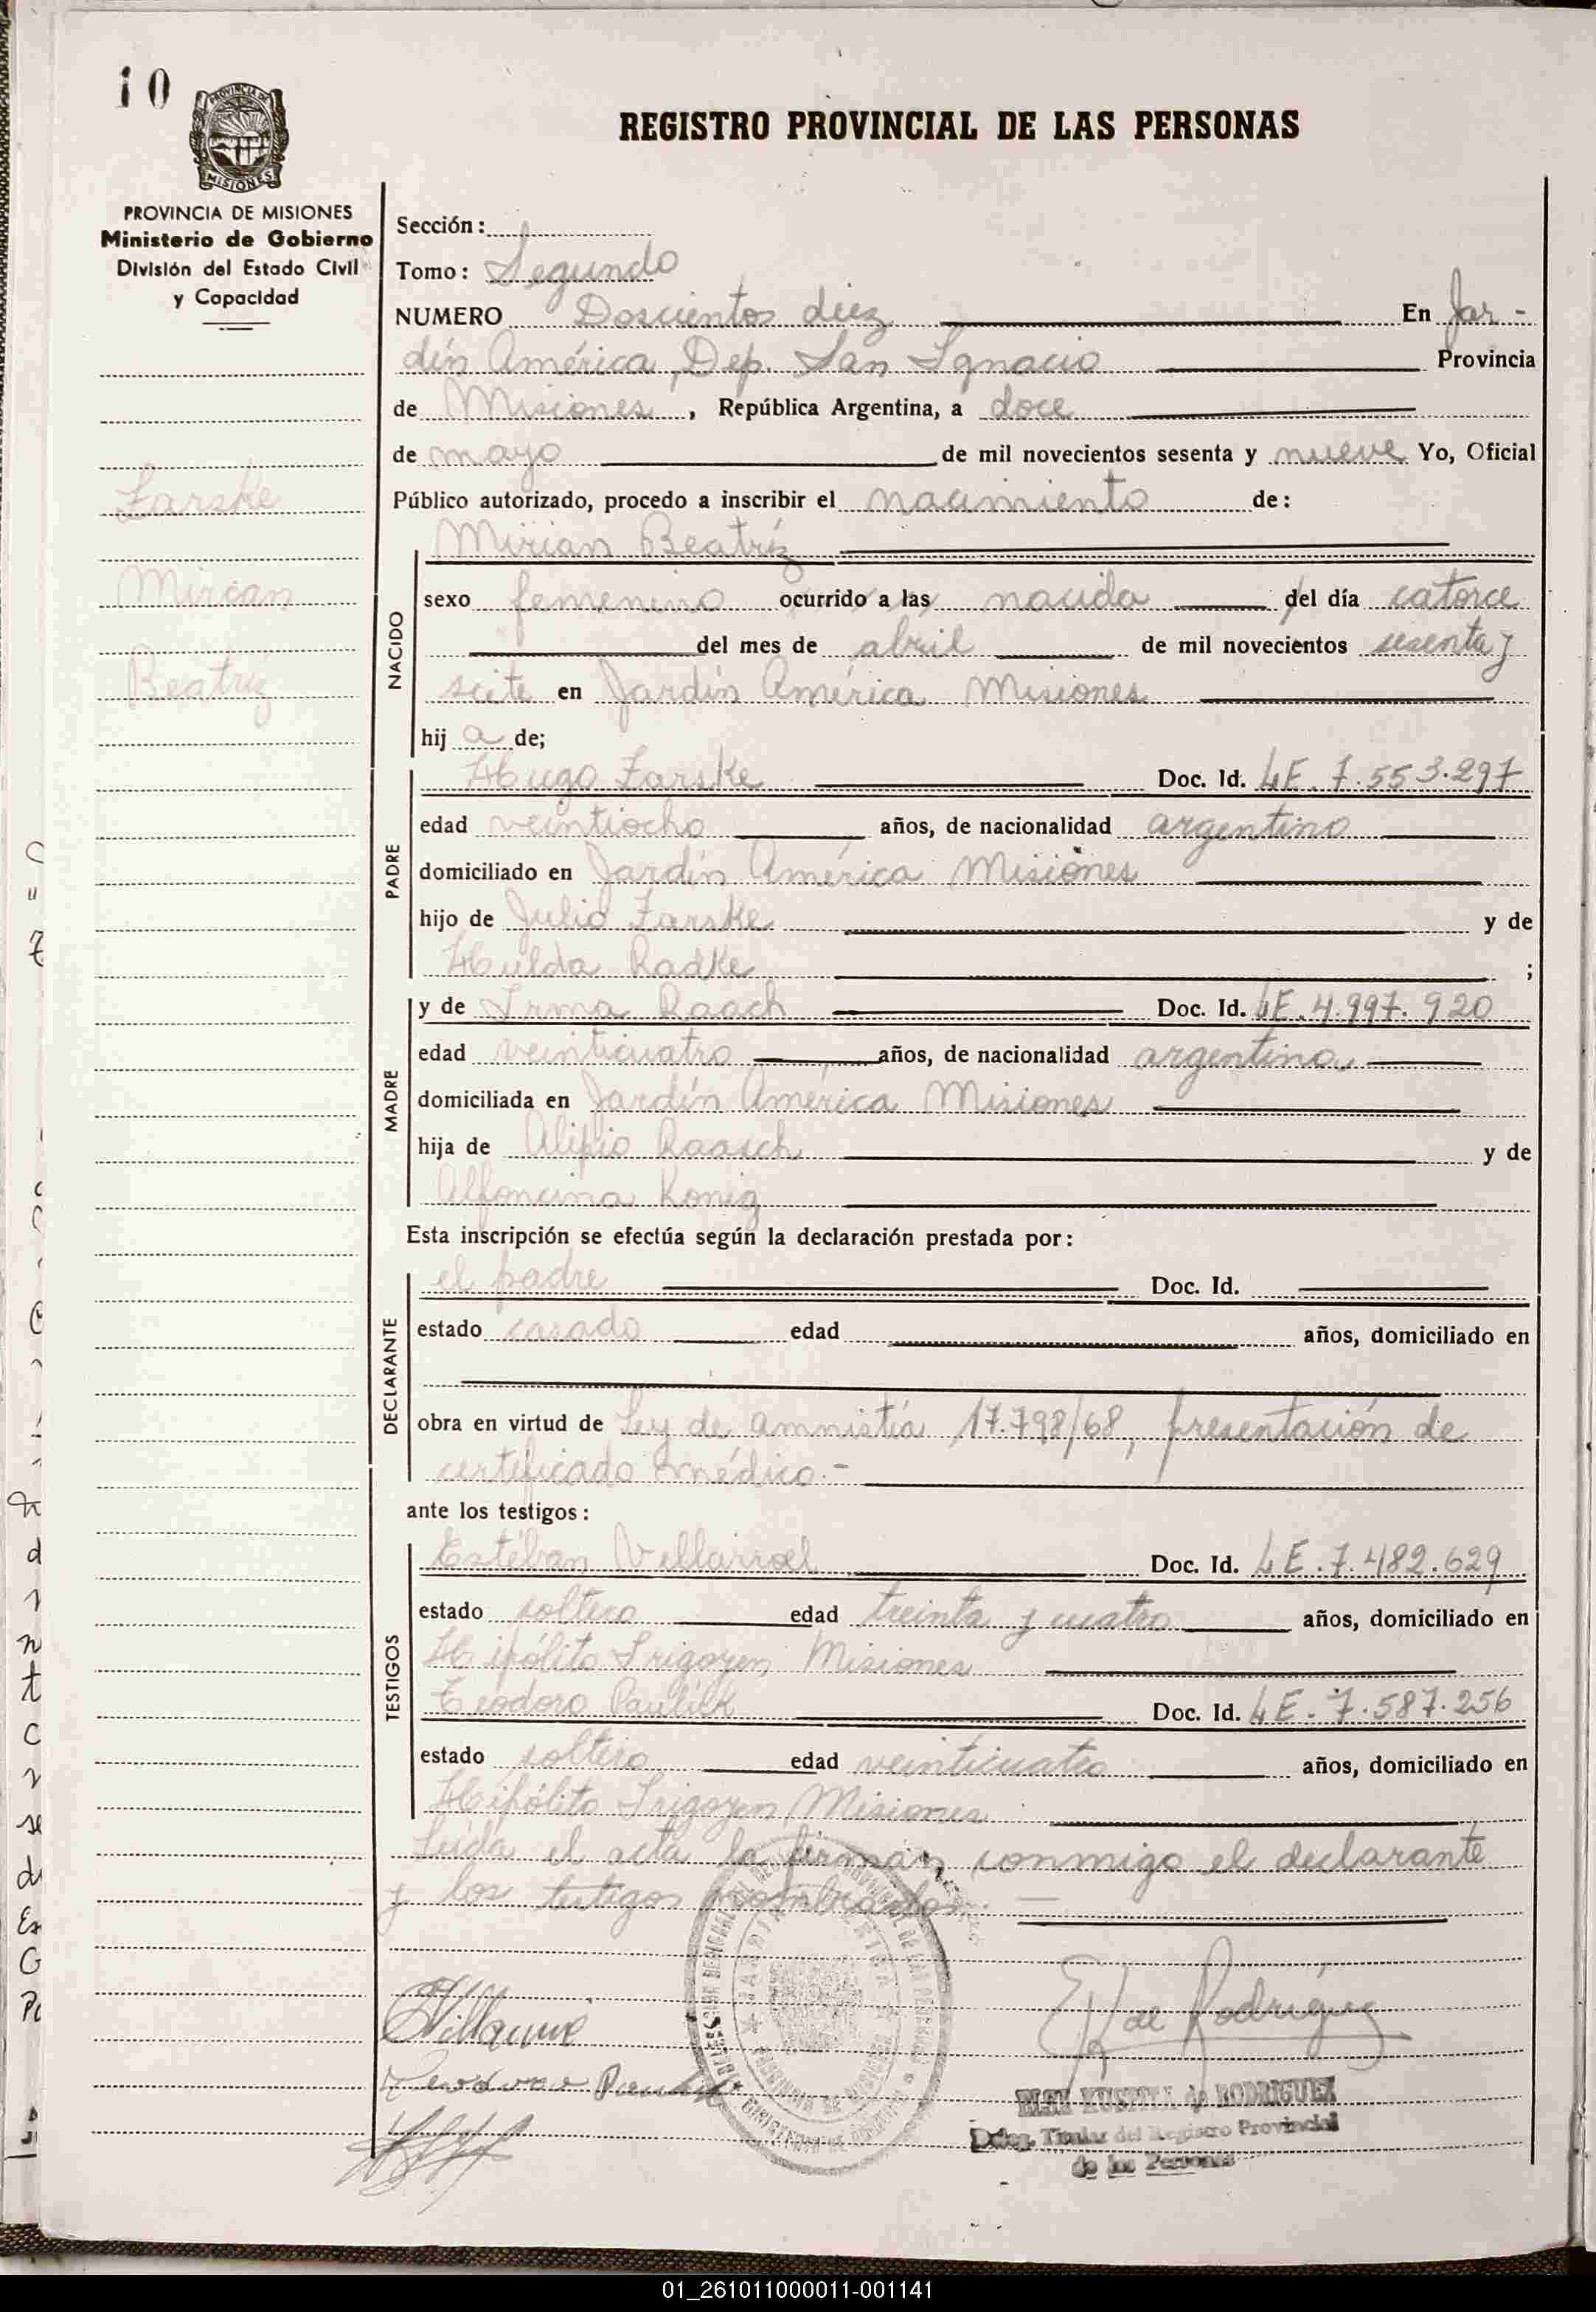 10
PROVINCIA DE MISIONES
REGISTRO PROVINCIAL DE LAS PERSONAS
PROVINCIA DE MISIONES
Ministerio de Gobierno
División del Estado Civil
y Capacidad
Zarske
Mirian
Beatriz
Sección:
Tomo: Segundo
NUMERO Doscientos diez En Jar-
dín América, Dep. San Ignacio Provincia
de Misiones, República Argentina, a doce
de mayo de mil novecientos sesenta y nueve Yo, Oficial
Público autorizado, procedo a inscribir el nacimiento de:
NACIDO
Mirian Beatríz
sexo femenino ocurrido a las nacida del día catorce
del mes de abril de mil novecientos sesenta y
seite en Jardín América Misiones
hij a de;
PADRE
Hugo Zarske Doc. Id. LE. 7.553.297
edad veintiocho años, de nacionalidad argentino
domiciliado en Jardín América Misiones
hijo de Julio Zarske y de
Hulda Radke ;
MADRE
y de Irma Raach Doc. Id. LE. 4.997.920
edad veinticuatro años, de nacionalidad argentina
domiciliada en Jardín América Misiones
hija de Alipio Raasch y de
Alfoncina Konig
Esta inscripción se efectúa según la declaración prestada por:
DECLARANTE
el padre Doc. Id.
estado casado edad años, domiciliado en
obra en virtud de Ley de amnistía 17.798/68, presentación de
certificado médico.-
ante los testigos:
TESTIGOS
Estéban Villarroel Doc. Id. LE. 7.482.629
estado soltero edad treinta y cuatro años, domiciliado en
Hipólito Irigoyen Misiones
Teodoro Paulick Doc. Id. LE. 7.587.256
estado soltero edad veinticuatro años, domiciliado en
Hipólito Irigoyen Misiones
Leída el acta la firman conmigo el declarante
y los testigos nombrados.-
Rodríguez
Teodoro
de RODRIGUEZ
Deleg. Titular del Registro Provincial
de las Personas
01_261011000011-001141